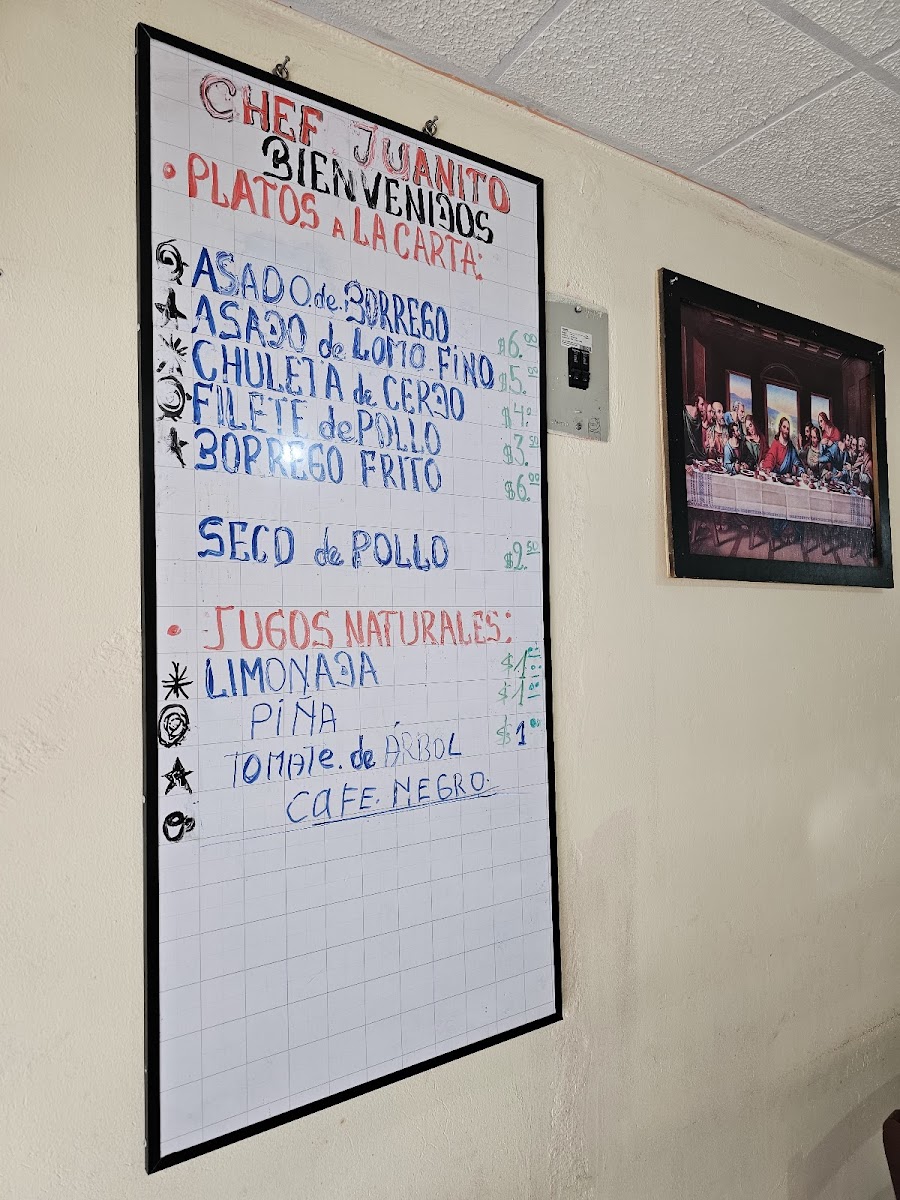 CHEF JUANITO
BIENVENIDOS
• PLATOS A LA CARTA:
ASADO de BORREGO $6.00
ASADO de LOMO FINO $5.00
CHULETA de CERDO $4.00
FILETE de POLLO $3.50
BORREGO FRITO $6.00
SECO de POLLO $2.50
• JUGOS NATURALES:
LIMONADA $1.00
PIÑA $1.00
TOMATE de ÁRBOL $1.00
CAFE NEGRO